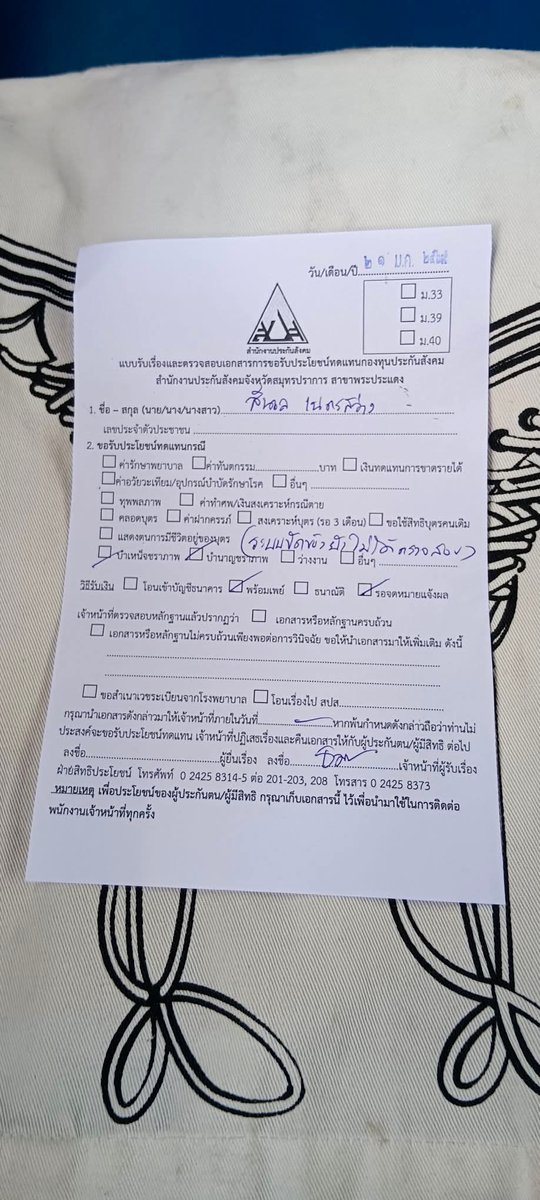 วัน/เดือน/ปี ๒๑ ม.ค. ๒๕๖๙
ม.33
ม.39
ม.40
สำนักงานประกันสังคม
แบบรับเรื่องและตรวจสอบเอกสารการขอรับประโยชน์ทดแทนกองทุนประกันสังคม
สำนักงานประกันสังคมจังหวัดสมุทรปราการ สาขาพระประแดง
1. ชื่อ – สกุล (นาย/นาง/นางสาว) เนตรสว่าง
เลขประจำตัวประชาชน
2. ขอรับประโยชน์ทดแทนกรณี
ค่ารักษาพยาบาล ค่าทันตกรรม บาท เงินทดแทนการขาดรายได้
ค่าอวัยวะเทียม/อุปกรณ์บำบัดรักษาโรค อื่นๆ
ทุพพลภาพ ค่าทำศพ/เงินสงเคราะห์กรณีตาย
คลอดบุตร ค่าฝากครรภ์ สงเคราะห์บุตร (รอ 3 เดือน) ขอใช้สิทธิบุตรคนเดิม
แสดงตนการมีชีวิตอยู่ของบุตร (ระบบขัดข้องยังไม่ได้ตรวจสอบ)
บำเหน็จชราภาพ บำนาญชราภาพ ว่างงาน อื่นๆ
วิธีรับเงิน โอนเข้าบัญชีธนาคาร พร้อมเพย์ ธนาณัติ รอจดหมายแจ้งผล
เจ้าหน้าที่ตรวจสอบหลักฐานแล้วปรากฏว่า เอกสารหรือหลักฐานครบถ้วน
เอกสารหรือหลักฐานไม่ครบถ้วนเพียงพอต่อการวินิจฉัย ขอให้นำเอกสารมาให้เพิ่มเติม ดังนี้
ขอสำเนาเวชระเบียนจากโรงพยาบาล โอนเรื่องไป สปส.
กรุณานำเอกสารดังกล่าวมาให้เจ้าหน้าที่ภายในวันที่ หากพ้นกำหนดดังกล่าวถือว่าท่านไม่
ประสงค์จะขอรับประโยชน์ทดแทน เจ้าหน้าที่ปฏิเสธเรื่องและคืนเอกสารให้กับผู้ประกันตน/ผู้มีสิทธิ ต่อไป
ลงชื่อ ผู้ยื่นเรื่อง ลงชื่อ เจ้าหน้าที่ผู้รับเรื่อง
ฝ่ายสิทธิประโยชน์ โทรศัพท์ 0 2425 8314-5 ต่อ 201-203, 208 โทรสาร 0 2425 8373
หมายเหตุ เพื่อประโยชน์ของผู้ประกันตน/ผู้มีสิทธิ กรุณาเก็บเอกสารนี้ ไว้เพื่อนำมาใช้ในการติดต่อ
พนักงานเจ้าหน้าที่ทุกครั้ง